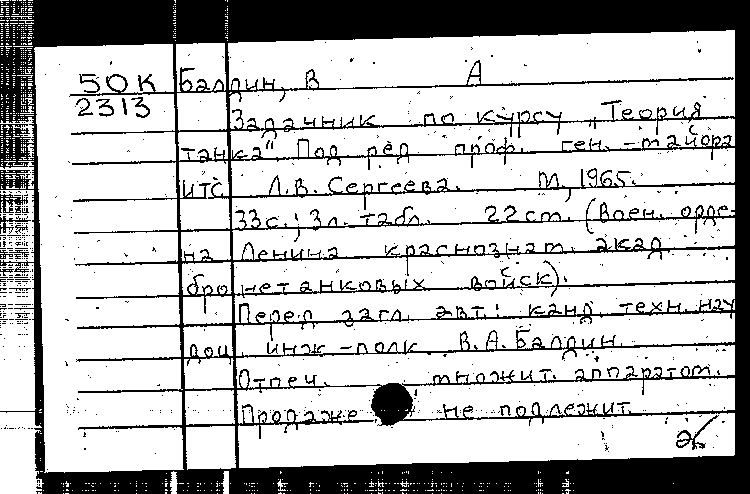 50К Балдин, В А
2313
Задачник по курсу „Теория
танка". Под ред проф. ген.-майора
ИТС Л.В. Сергеева. М., 1965.
33с.; 3л. табл. 22cm. (Воен. орде-
на Ленина краснознам. акад
бронетанковых войск).
Перед загл. авт.: канд. техн. нау
доц. инж-полк В.А. Балдин.
Отпеч. множит. аппаратом.
Продаже не подлежит.